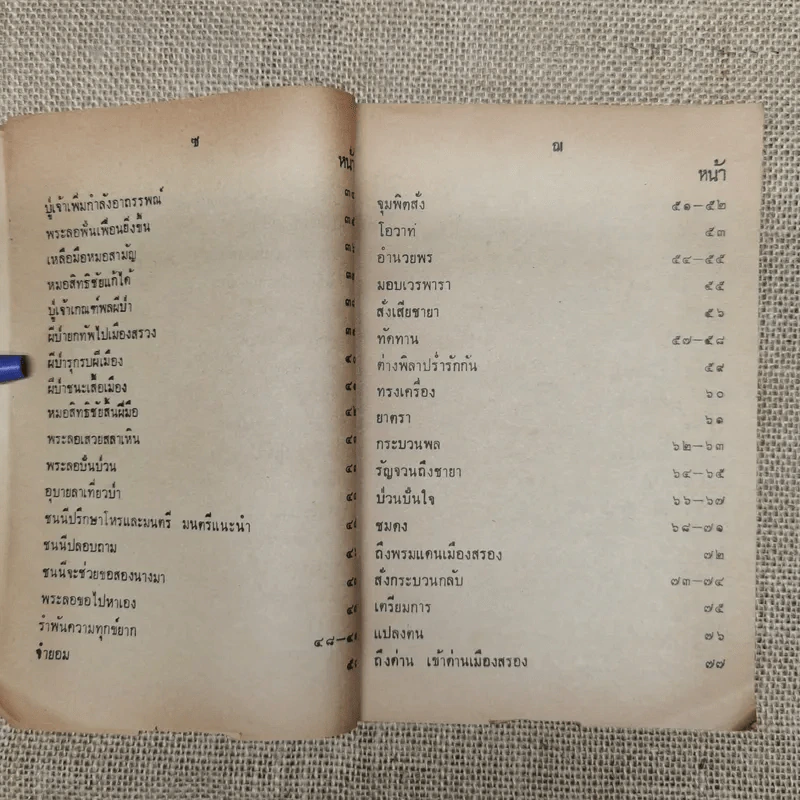 ซ
หน้า
ปู่เจ้าเพิ่มกำลังอาถรรพณ์
พระลอฟั่นเฟือนยิ่งขึ้น
เหลือมือหมอสามัญ
หมอสิทธิชัยแก้ได้
ปู่เจ้าเกณฑ์พลผีป่า
ผีป่ายกทัพไปเมืองสรวง
ผีป่ารุกรบผีเมือง
ผีป่าชนะเสื้อเมือง
หมอสิทธิชัยสิ้นฝีมือ
พระลอเสวยสลาเหิน
พระลอปั่นป่วน
อุบายลาเที่ยวป่า
ชนนีปรึกษาโหรและมนตรี มนตรีแนะนำ
ชนนีปลอบถาม
ชนนีจะช่วยขอสองนางมา
พระลอขอไปหาเอง
รำพันความทุกข์ยาก
จำยอม
ฌ
หน้า
จุมพิตสั่ง ๕๑–๕๒
โอวาท ๕๓
อำนวยพร ๕๔–๕๕
มอบเวรพารา ๕๕
สั่งเสียชายา ๕๖
ทัดทาน ๕๗–๕๘
ต่างพิลาปร่ำรักกัน ๕๙
ทรงเครื่อง ๖๐
ยาตรา ๖๑
กระบวนพล ๖๒–๖๓
รัญจวนถึงชายา ๖๔–๖๕
ป่วนปั่นใจ ๖๖–๖๗
ชมดง ๖๘–๗๑
ถึงพรมแดนเมืองสรอง ๗๒
สั่งกระบวนกลับ ๗๓–๗๔
เตรียมการ ๗๕
แปลงตน ๗๖
ถึงด่าน เข้าด่านเมืองสรอง ๗๗